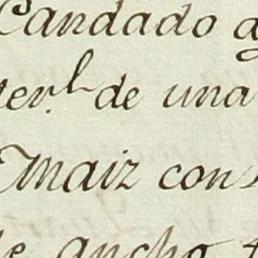 Candado
ter.l de una
Maiz con
de ancho